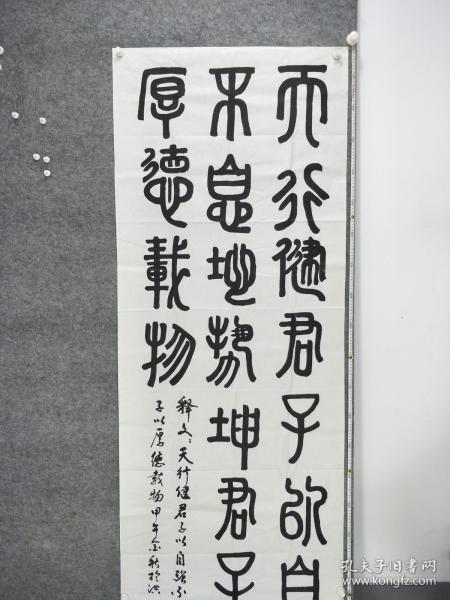 天行健君子以自
不息地势坤君子
厚德载物
释文：天行健君子以自强不
子以厚德载物甲午金秋於洪
孔夫子旧书网
www.kongfz.com